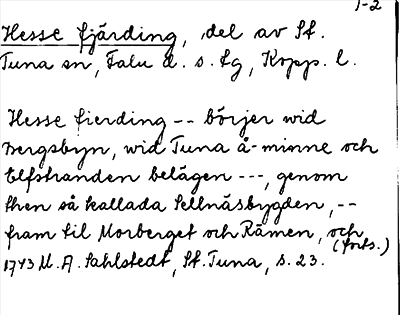 1-2
Hesse fjärding, del av St.
Tuna sn, Falu d. s. fg, Kopp. l.
Hesse fierding -- börjer wid
Bergsbyn, wid Tuna å-minne och
Elfstranden belägen ---, genom
then så kallada Sellnäsbygden, --
fram til Morberget och Rämen, och
(forts.)
1743 M. A. Sahlstedt, St. Tuna, s. 23.